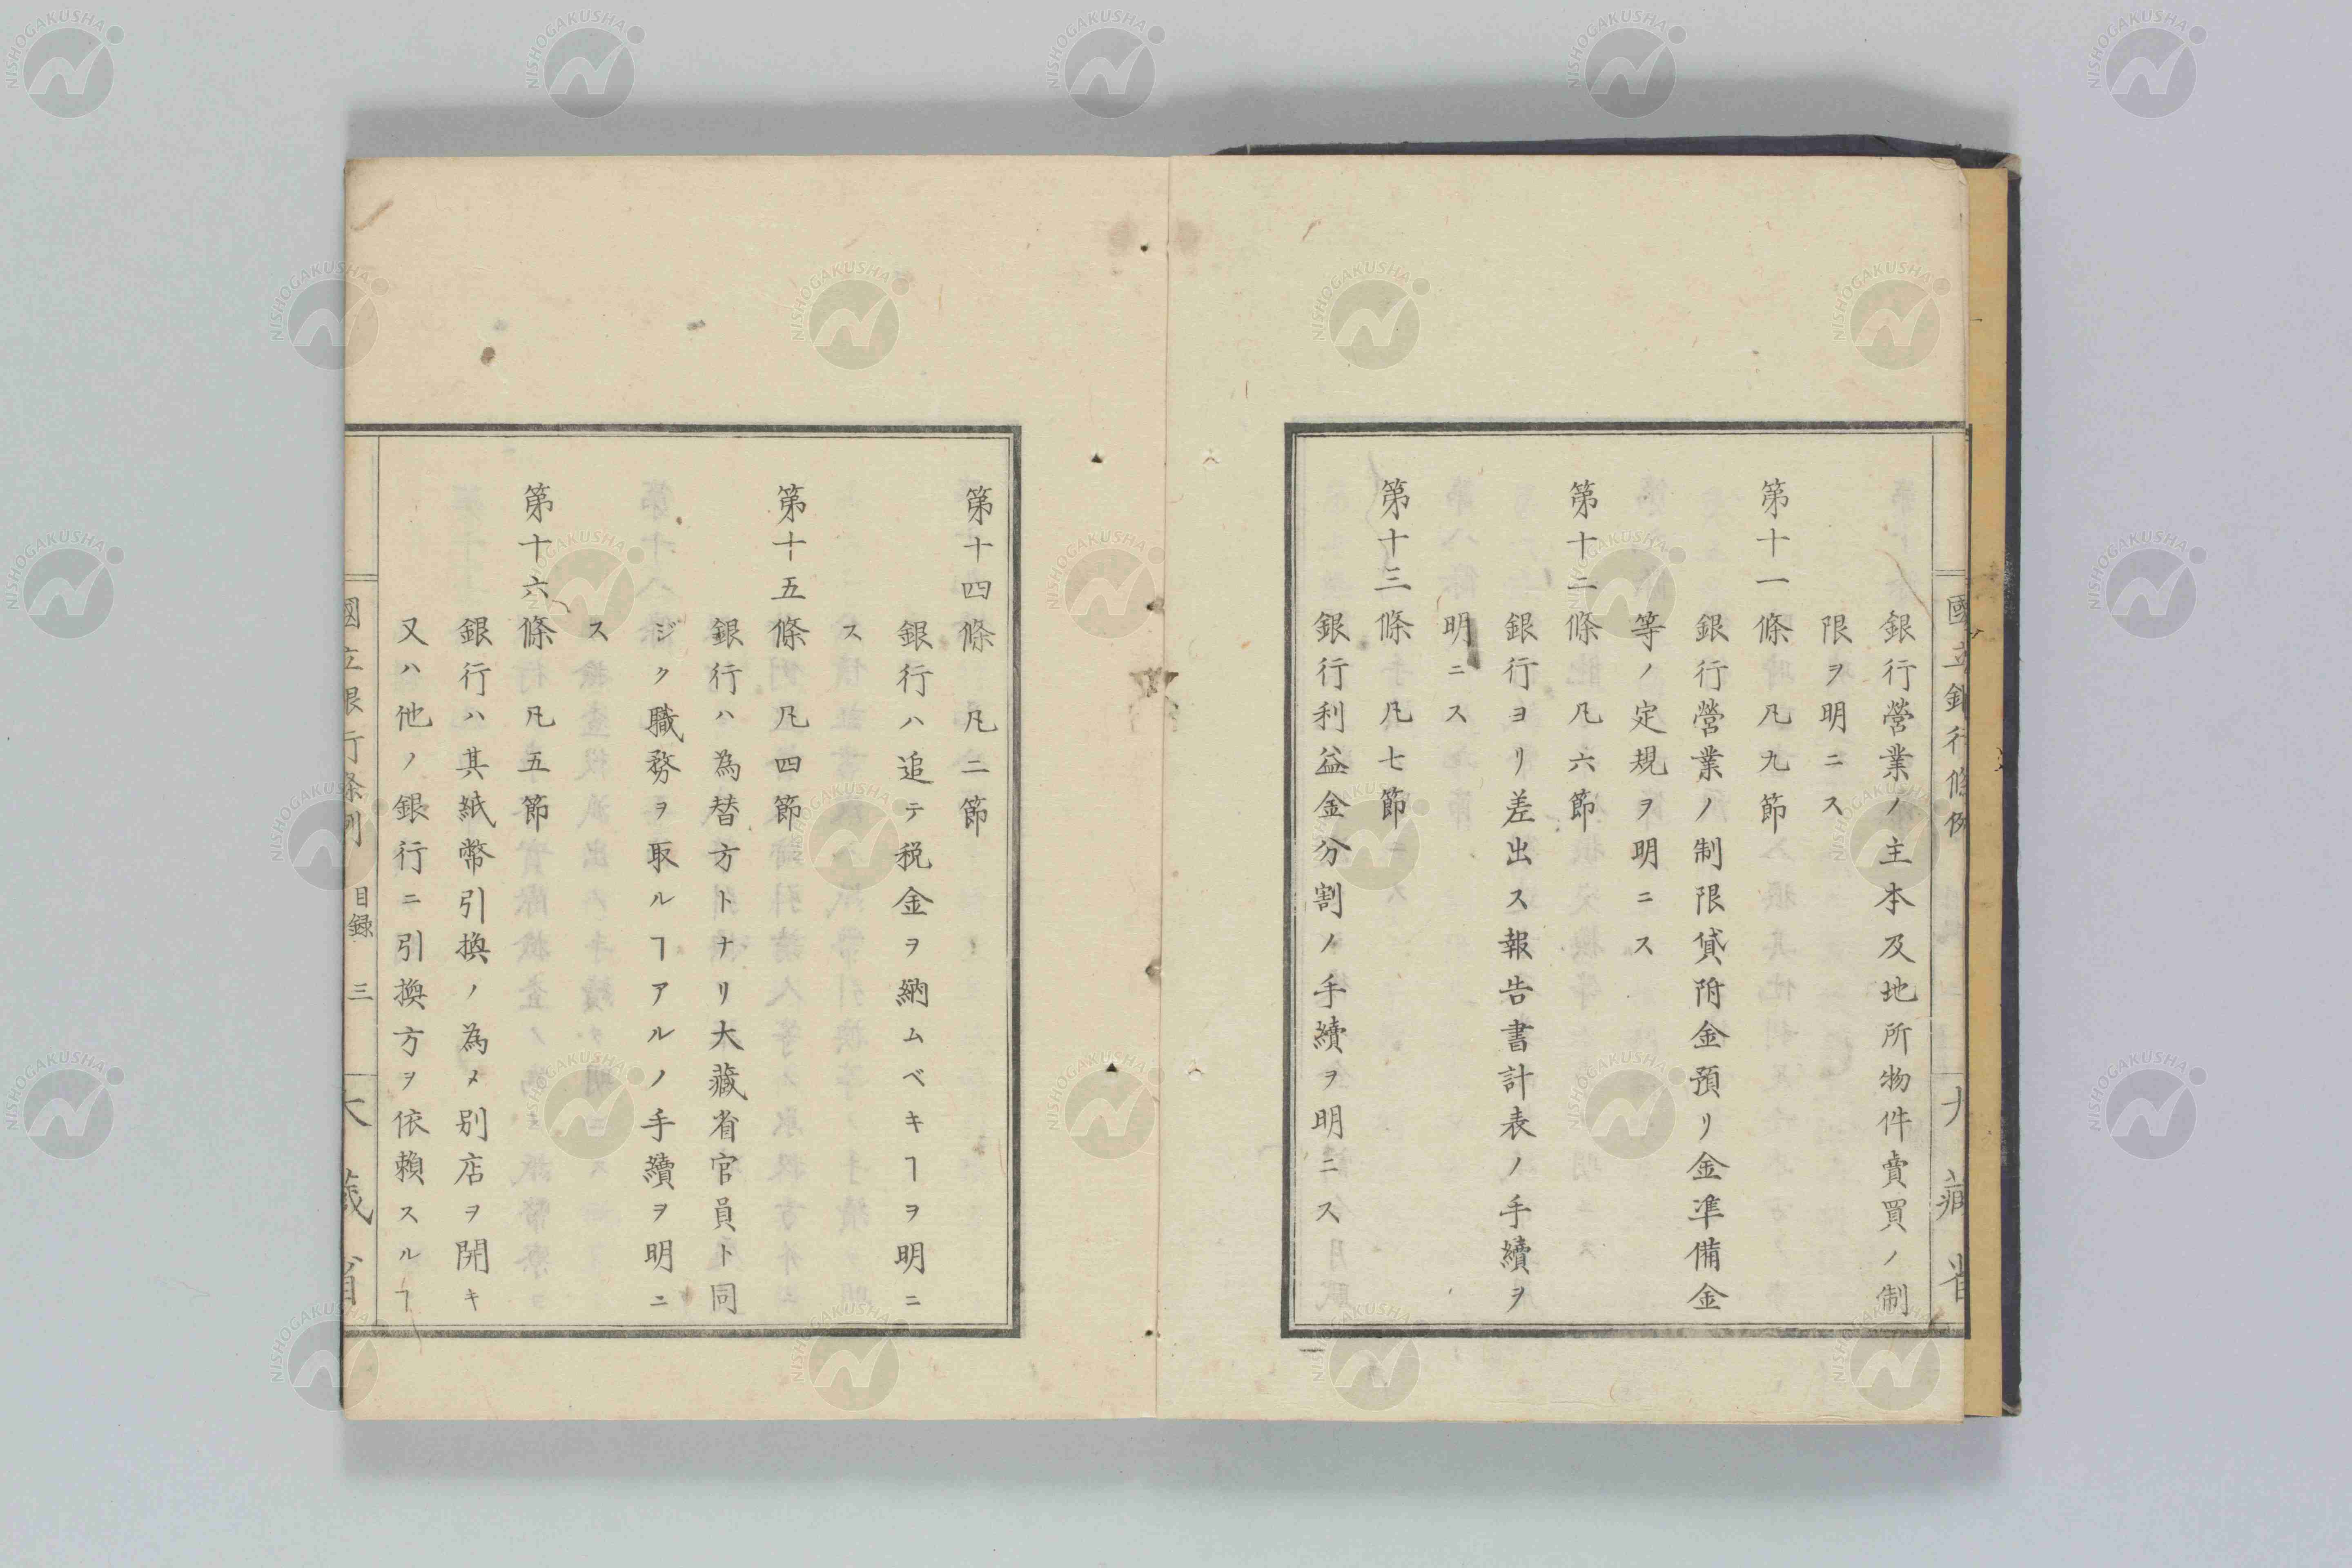 國立銀行條例
大藏省
銀行營業ノ主本及地所物件賣買ノ制
限ヲ明ニス
第十一條凡九節
銀行營業ノ制限貸附金預リ金凖備金
等ノ定規ヲ明ニス
第十二條凡六節
銀行ヨリ差出ス報告書計表ノ手續ヲ
明ニス
第十三條凡七節
銀行利益金分割ノ手續ヲ明ニス
第十四條凡二節
銀行ハ追テ税金ヲ納ムベキヿヲ明ニ
ス
第十五條凡四節
銀行ハ為替方トナリ大藏省官員ト同
ジク職務ヲ取ルヿアルノ手續ヲ明ニ
ス
第十六條凡五節
銀行ハ其紙幣引換ノ為メ別店ヲ開キ
又ハ他ノ銀行ニ引換方ヲ依賴スルヿ
國立銀行條例 目録 三
大藏省
NISHOGAKUSHA